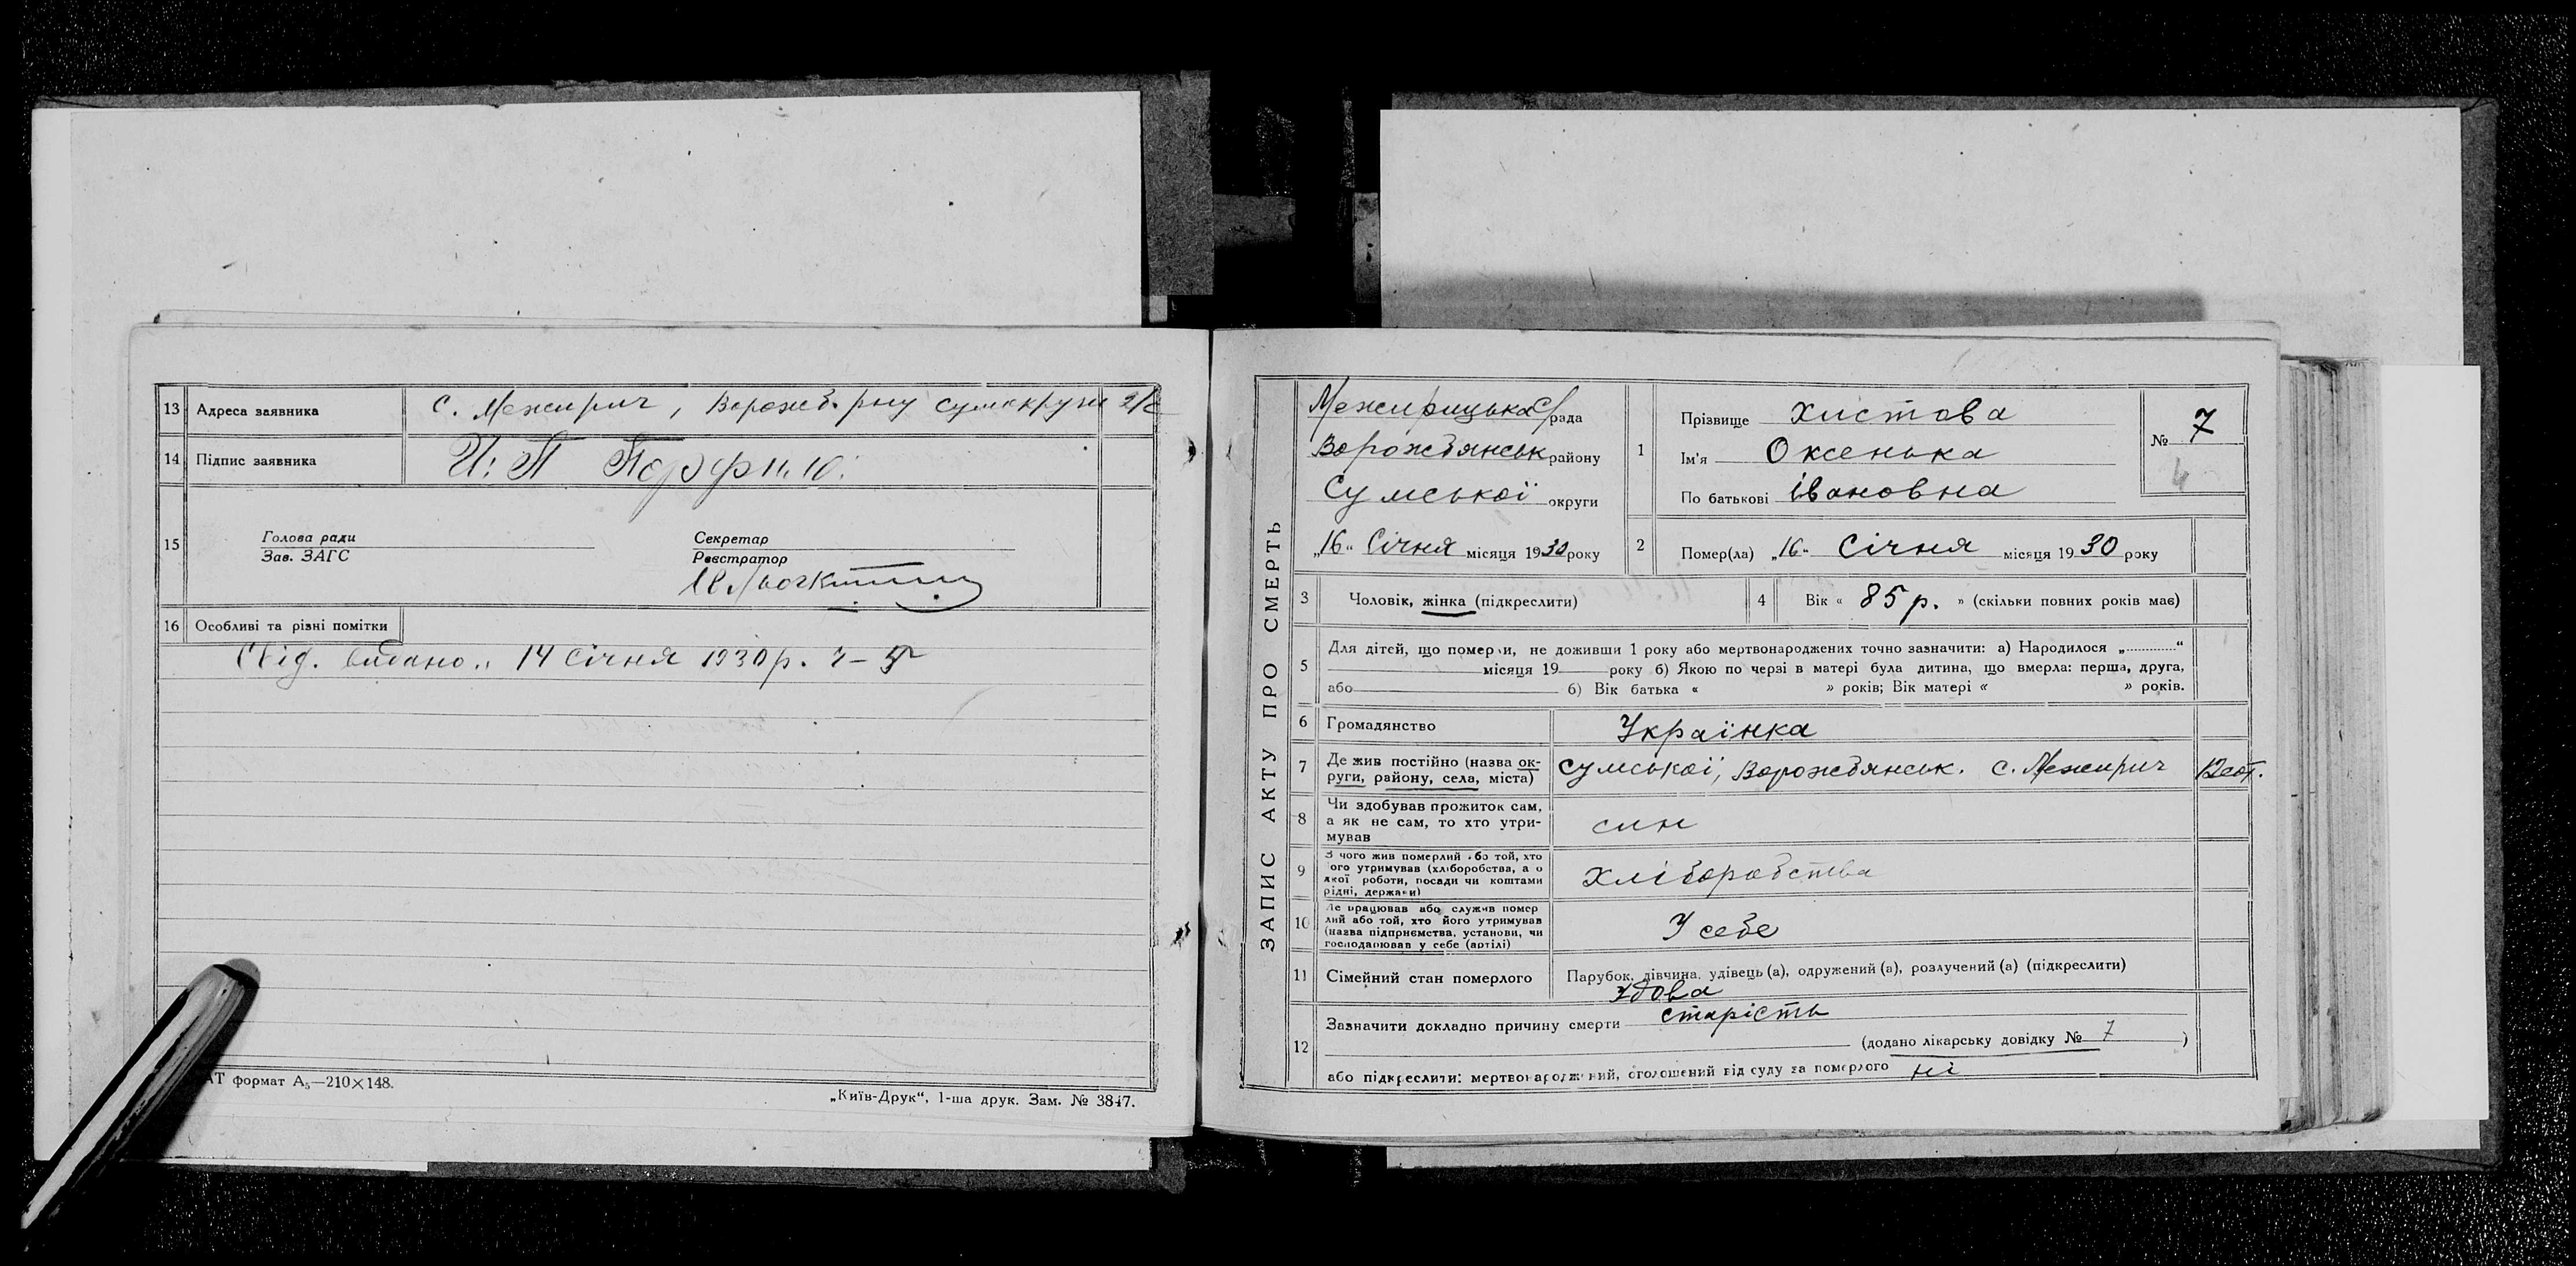 13 Адреса заявника с. Межирич, Ворожб. р-ну Сумокруги
14 Підпис заявника И. П.
15 Голова ради Секретар
Зав. ЗАГС Реєстратор
16 Особливі та різні помітки
Свід. видано 14 січня 1930 р. ч-
АТ формат А₅—210×148.
„Київ-Друк“, 1-ша друк. Зам. № 3847.
ЗАПИС АКТУ ПРО СМЕРТЬ
Межирицька с/рада
Ворожбянськ району
Сумської округи
„16“ Січня місяця 1930 року
1 Прізвище Хистова
Ім'я Оксенька
По батькові Івановна
№ 7
4
2 Помер(ла) „16“ Січня місяця 1930 року
3 Чоловік, жінка (підкреслити)
4 Вік « 85 р. » (скільки повних років має)
5 Для дітей, що померли, не доживши 1 року або мертвонароджених точно зазначити: а) Народилося „............“
місяця 19 року б) Якою по черзі в матері була дитина, що вмерла: перша, друга,
або б) Вік батька « » років; Вік матері « » років.
6 Громадянство Українка
7 Де жив постійно (назва ок-
руги, району, села, міста) Сумської, Ворожбянськ. с. Межирич
8 Чи здобував прожиток сам,
а як не сам, то хто утри-
мував син
9 З чого жив померлий або той, хто
його утримував (хліборобства, а о
якої роботи, посади чи коштами
рідні, держави) хліборобства
10 Де працював або служив помер
лий або той, хто його утримував
(назва підприємства, установи, чи
господарював у себе (артілі) У себе
11 Сімейний стан померлого Парубок, дівчина, удівець (а), одружений (а), розлучений (а) (підкреслити)
удова
12 Зазначити докладно причину смерти старість
(додано лікарську довідку № 7 )
або підкреслити: мертвонароджений, оголошений від суду за померлого ні